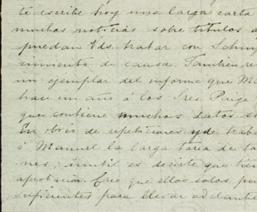 te escribe hoy una larga carta
muchas noticias sobre titulos a
puedan Uds. tratar con Schmj
cimiento de causa. Tambien re
un ejemplar del informe que M
hace un año á los Sres Paige
que contiene muchos datos so
En obvio de repeticiones y de traba
á Manuel la larga tarea de ta
nes, inutil es decirte que tien
aprobacion. Creo que ellos solos pu
suficientes para llevar adelante